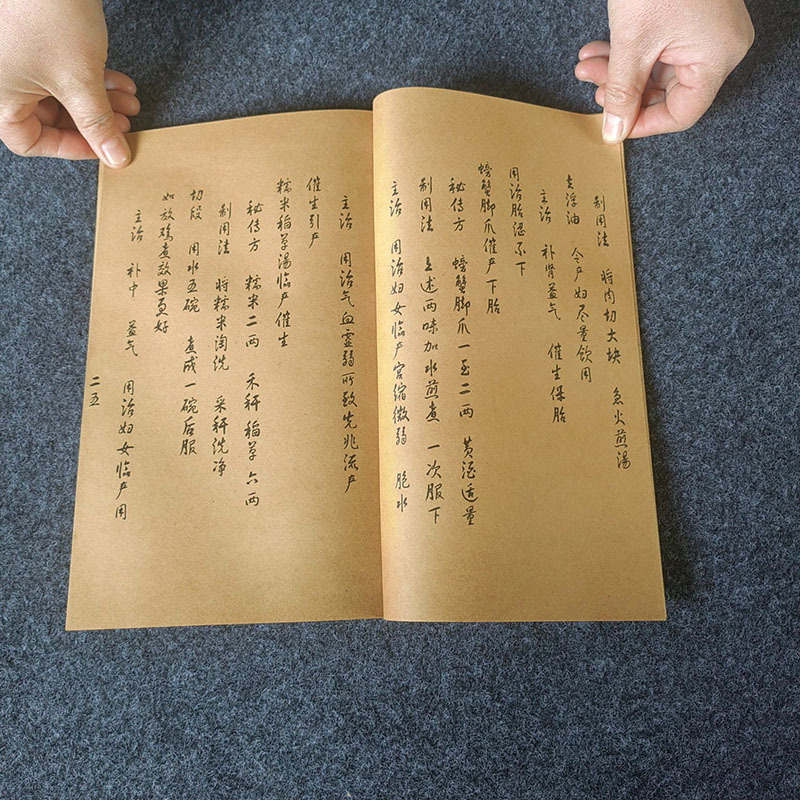 制用法 将肉切大块 急火煎湯
去浮油 令产妇尽量饮用
主治 补肾益气 催生保胎
用治胎儿不下
螃蟹脚爪催产下胎
秘传方 螃蟹脚爪一至二两 黄酒适量
制用法 上述两味加水煎煮 一次服下
主治 用治妇女临产宫缩微弱 胞水
主治 用治气血虚弱所致先兆流产
催生引产
糯米稻草湯临产催生
秘传方 糯米二两 禾秆稻草六两
制用法 将糯米淘洗 采秆洗净
切段 用水五碗 煮成一碗后服
如放鸡煮效果更好
主治 补中 益气 用治妇女临产用
二五